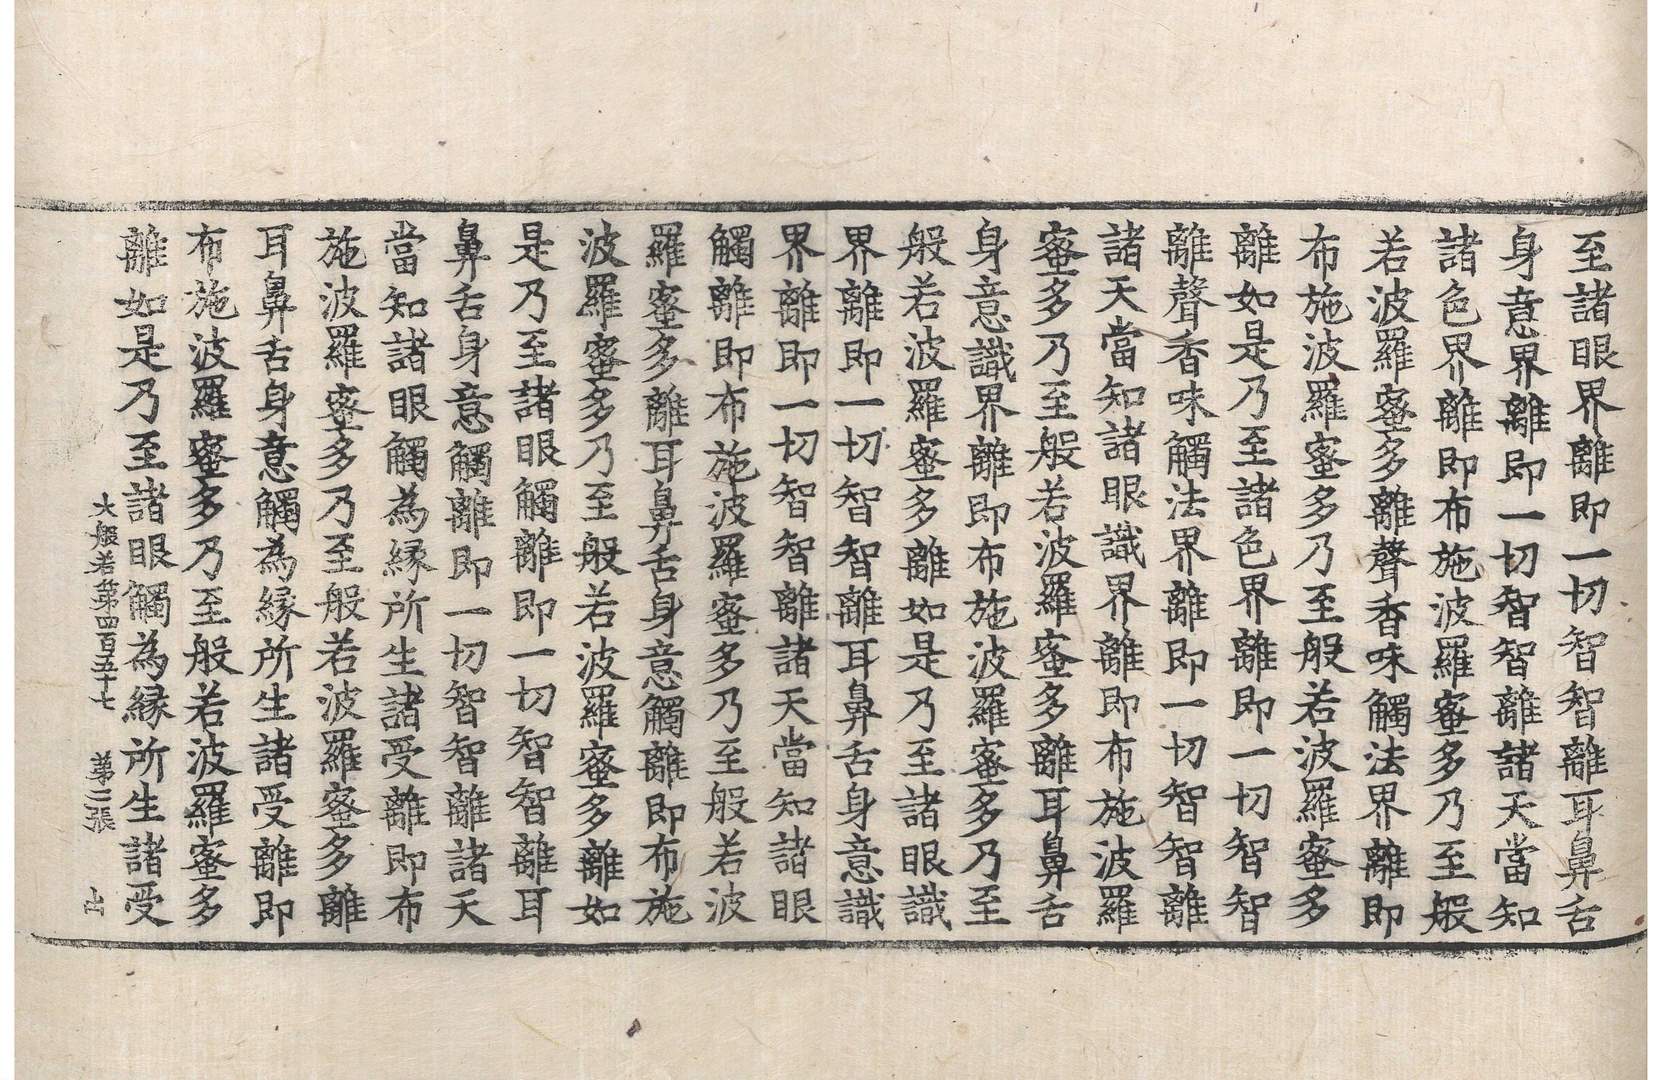 至諸眼界離即一切智智離耳鼻舌
身意界離即一切智智離諸天當知
諸色界離即布施波羅蜜多乃至般
若波羅蜜多離聲香味觸法界離即
布施波羅蜜多乃至般若波羅蜜多
離如是乃至諸色界離即一切智智
離聲香味觸法界離即一切智智離
諸天當知諸眼識界離即布施波羅
蜜多乃至般若波羅蜜多離耳鼻舌
身意識界離即布施波羅蜜多乃至
般若波羅蜜多離如是乃至諸眼識
界離即一切智智離耳鼻舌身意識
界離即一切智智離諸天當知諸眼
觸離即布施波羅蜜多乃至般若波
羅蜜多離耳鼻舌身意觸離即布施
波羅蜜多乃至般若波羅蜜多離如
是乃至諸眼觸離即一切智智離耳
鼻舌身意觸離即一切智智離諸天
當知諸眼觸為緣所生諸受離即布
施波羅蜜多乃至般若波羅蜜多離
耳鼻舌身意觸為緣所生諸受離即
布施波羅蜜多乃至般若波羅蜜多
離如是乃至諸眼觸為緣所生諸受
大般若第四百五十七 第二張